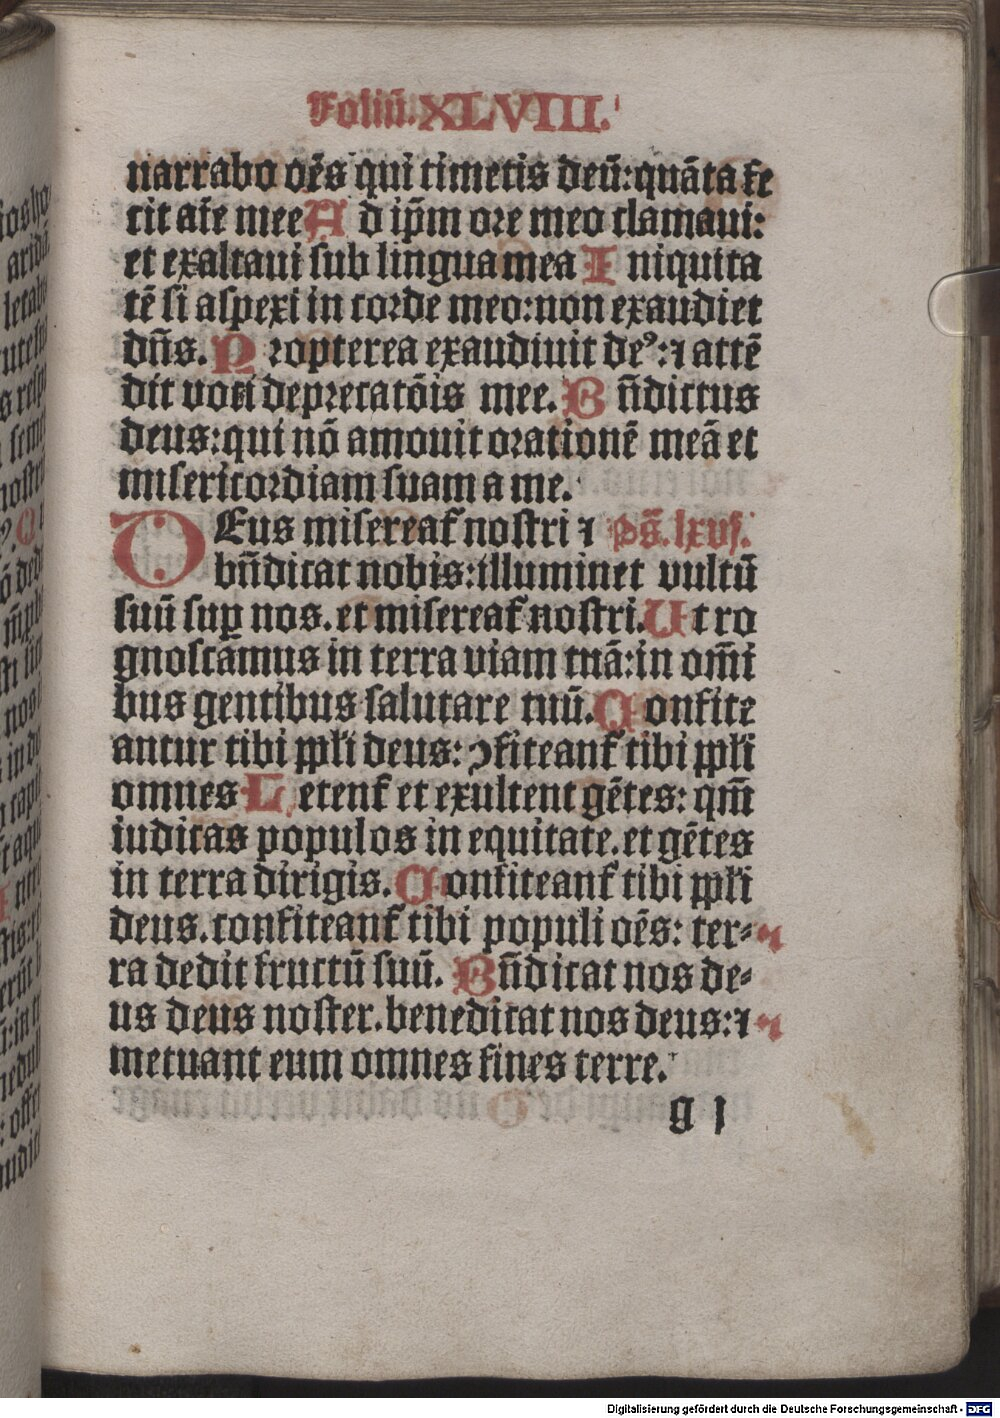 Foliū. XLVIII.
narrabo oēs qui timetis deū: quāta fe
cit aīe mee A d ip̄m ore meo clamaui:
et exaltaui sub lingua mea I niquita
tē si aspexi in corde meo: non exaudiet
dn̄s. P ropterea exaudiuit deꝰ: ⁊ attē
dit voci deprecatōis mee. B n̄dictus
deus: qui nō amouit orationē meā et
misericordiam suam a me.
D Eus misereat᷑ nostri ⁊ Ps̄. lxvj.
bn̄dicat nobis: illuminet vultū
suū suꝑ nos. et misereat᷑ nostri. U t co
gnoscamus in terra viam tuā: in om̄i
bus gentibus salutare tuū. C onfite
antur tibi ppl̄i deus: ꝯfiteant᷑ tibi ppl̄i
omnes L etent᷑ et exultent gētes: qm̄
iudicas populos in equitate. et gētes
in terra dirigis. C onfiteant᷑ tibi ppl̄i
deus. confiteant᷑ tibi populi oēs: ter⸗
ra dedit fructū suū. B n̄dicat nos de⸗
us deus noster. benedicat nos deus: ⁊
metuant eum omnes fines terre.
g j
Digitalisierung gefördert durch die Deutsche Forschungsgemeinschaft - DFG